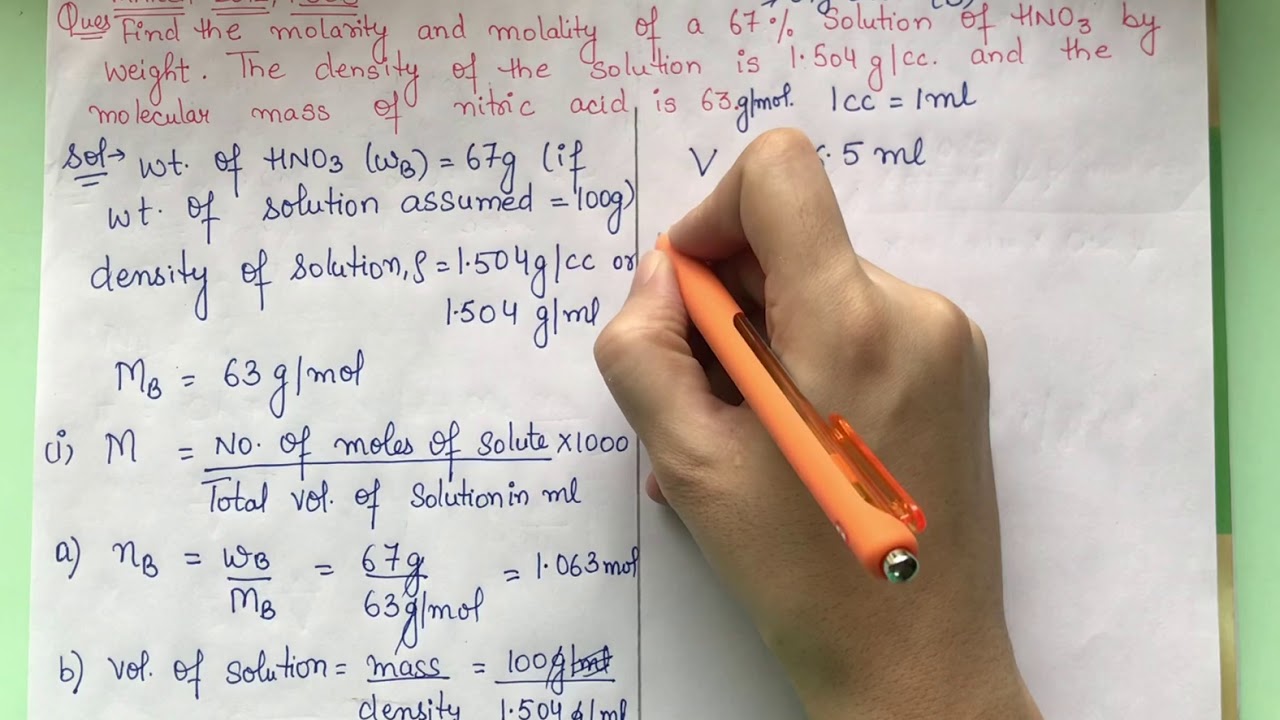 Ques Find the molarity and molality of a 67% Solution of HNO3 by
weight. The density of the solution is 1.504 g/cc. and the
molecular mass of nitric acid is 63 g/mol. 1cc = 1ml
Sol→ wt. of HNO3 (wB) = 67g (if
wt. of solution assumed = 100g)
density of solution, ρ = 1.504g/cc or
1.504 g/ml
MB = 63 g/mol
(i) M = No. of moles of solute × 1000
Total vol. of solution in ml
a) nB = wB = 67g = 1.063 mol
MB 63g/mol
b) vol. of solution = mass = 100g
density 1.504 g/ml
V .5 ml